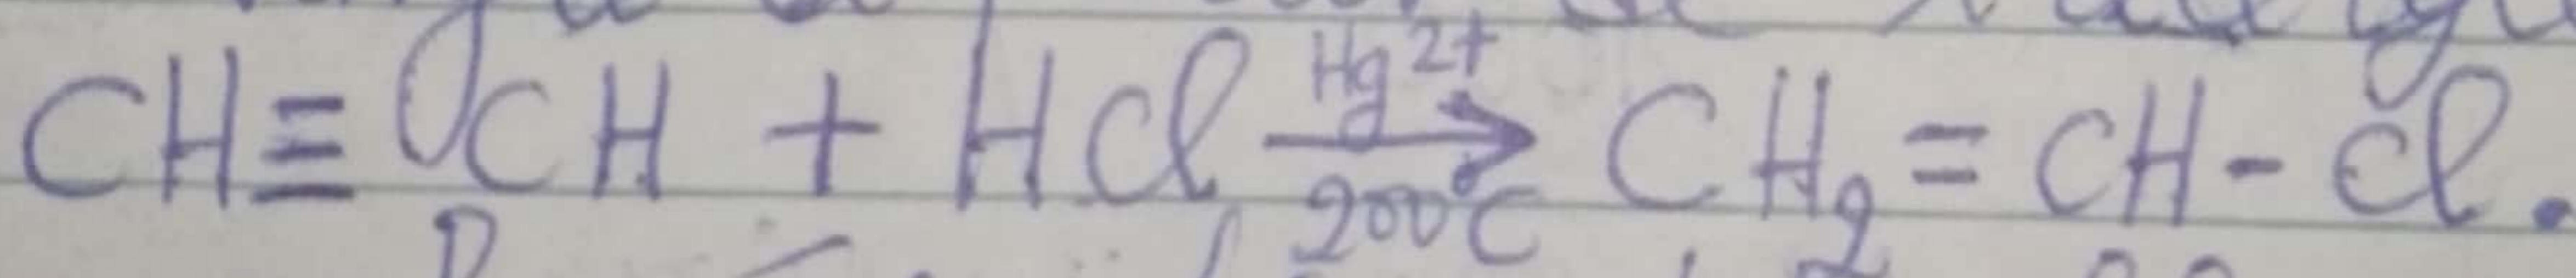 CH≡CH + HCl $\xrightarrow[200°C]{Hg^{2+}}$ CH₂=CH-Cl.